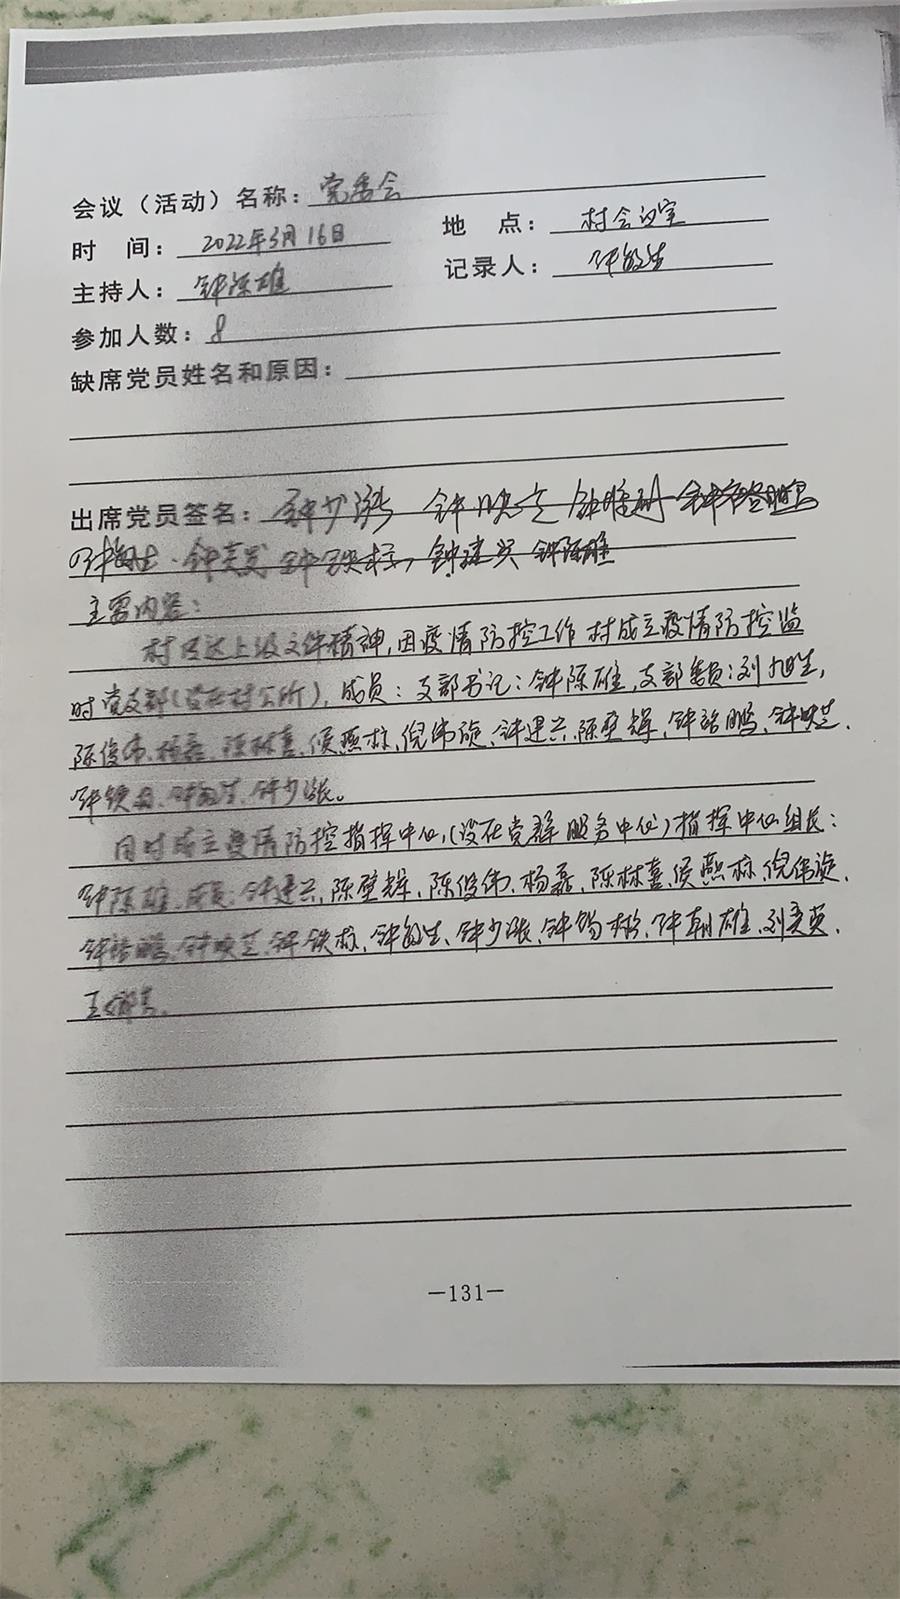 会议（活动）名称：党委会
时 间：2022年3月16日 地 点：村会议室
主持人：钟陈雄 记录人：钟敏生
参加人数：8
缺席党员姓名和原因：
出席党员签名：钟少涨 钟映芝
钟敏生 钟铁标 钟建兴 钟陈雄
主要内容：
村 达上级文件精神，因疫情防控工作 村成立疫情防控监
时党支部(设在村公所)，成员：支部书记：钟陈雄，支部委员：刘旭生，
陈俊伟、杨磊、陈林喜、侯燕林、倪伟旋、钟建兴、陈壁辉、钟 鹏、钟映芝、
钟铁标、钟敏生、钟少涨。
同时成立疫情防控指挥中心，(设在党群服务中心)指挥中心组长：
钟陈雄、成员：钟建兴、陈壁辉、陈俊伟、杨磊、陈林喜、侯燕林、倪伟旋、
钟 鹏、钟映芝、钟铁标、钟敏生、钟少涨、钟 、钟朝雄、刘美英、
王
—131—